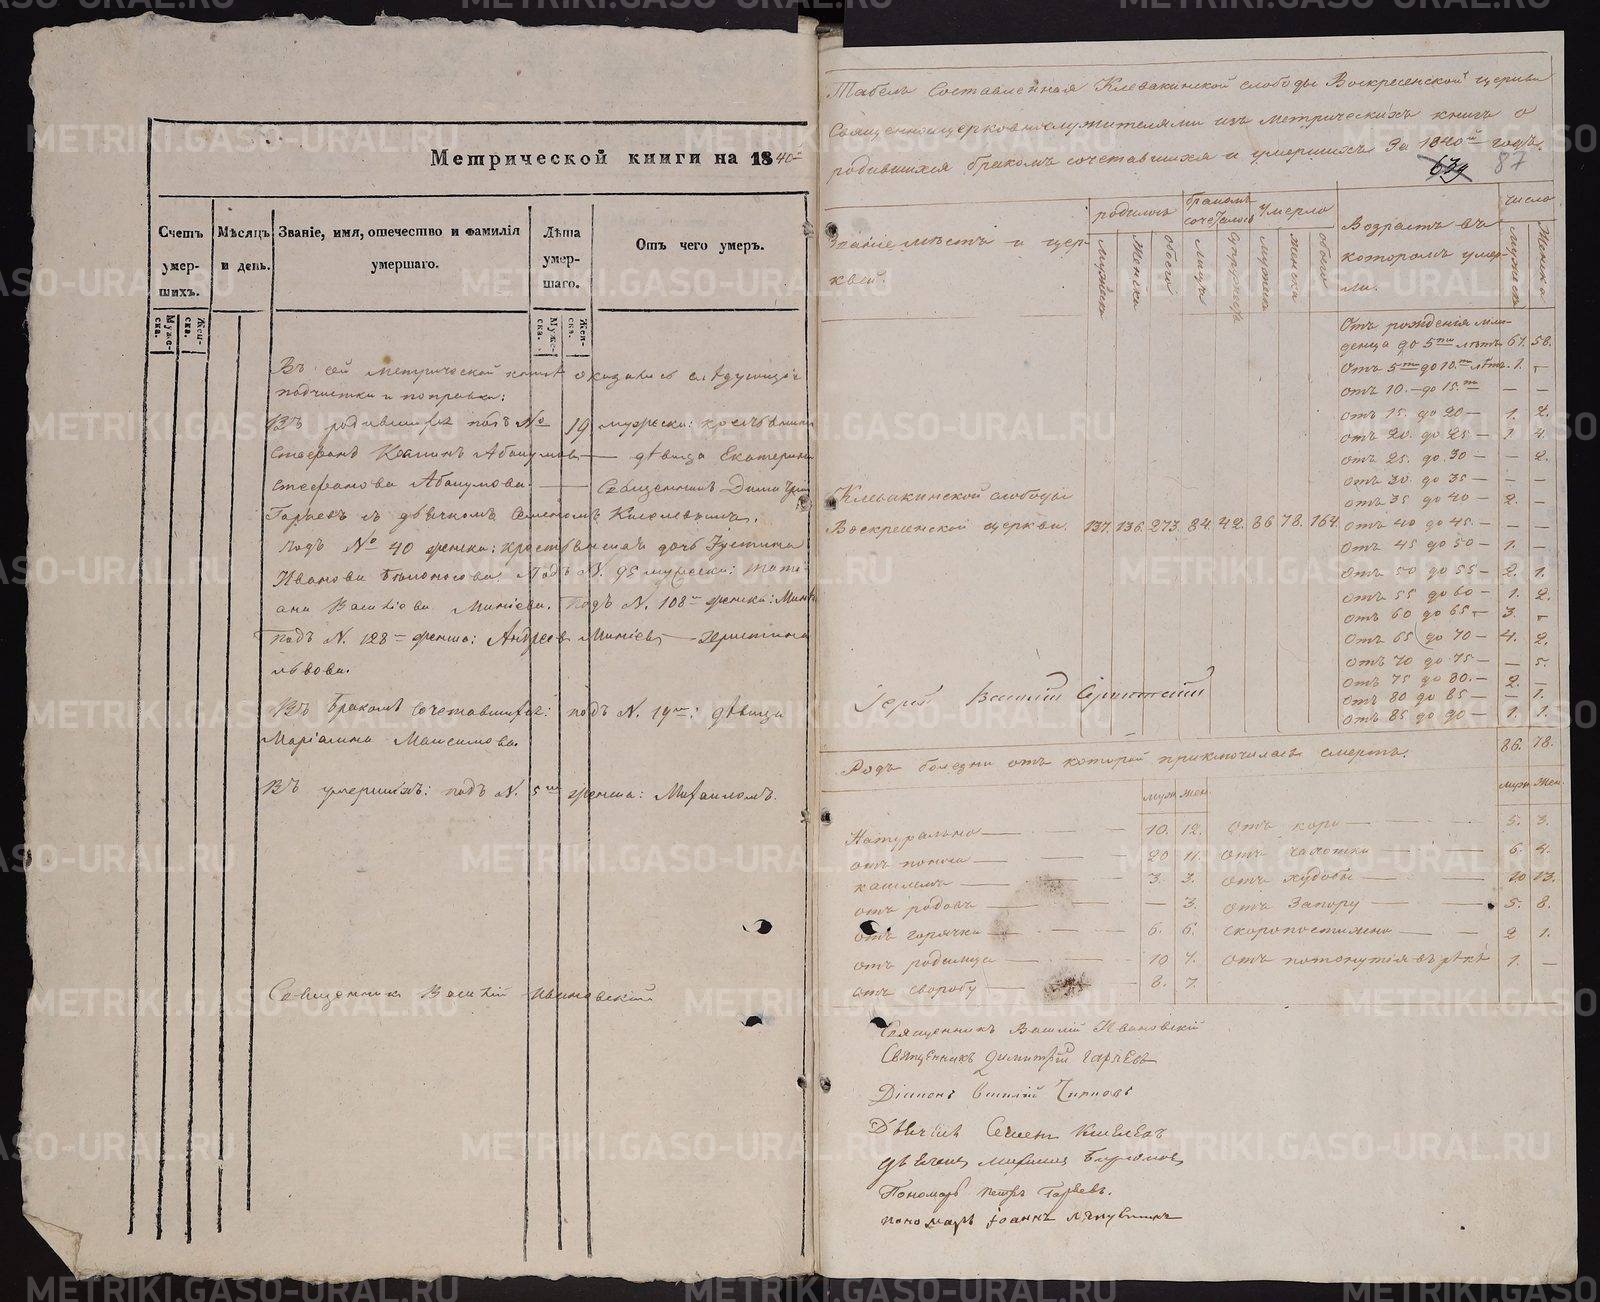 Метрической книги на 1840
Счетъ умер-шихъ.
Мѣсяцъ и день.
Званіе, имя, отечество и фамилія умершаго.
Лѣта умер-шаго.
Отъ чего умеръ.
Муже-ска.
Жен-ска.
Муже-ска.
Жен-ска.
Въ сей метрической книге оказались слѣдующія
подчистки и поправки:
Въ родившихся подъ № 19 мужеска:
Абакумовъ — дѣвица Екатерина
Стефанова Абакумова — Священникъ
Гаряевъ съ дьячкомъ
Подъ № 40 женска: крестьянская дочь Устинья
Иванова Бѣлоносова. Подъ N. 95 мужеска:
Минѣева. Подъ N. 108 женска:
Подъ N. 128 женска: Андреев Минѣев —
Львова.
Въ бракомъ сочетавшихся: подъ N. 19: дѣвица
Маріамна Максимова.
Въ умершихъ: подъ N. 5 женска: Михаиломъ.
Священникъ Василій Ивановскій
Табель Составленная Клевакинской слободы Воскресенской церкви
Священноцерковнослужителями изъ метрическихъ книгъ о
родившихся бракомъ сочетавшихся и умершихъ За 1840й годъ.
639 87
Званіе мѣстъ и цер-
квей.
родилось
бракомъ сочеталось
Умерло
Возрастъ въ
которомъ умер-
ли.
число
мужеска
женска
обоего
лицъ
супружествъ
мужеска
женска
обоего
мужеска
женска
Отъ рожденія мла-
денца до 5ти лѣтъ 67. 58.
Отъ 5ти до 10.ти лѣтъ. 1. —
Отъ 10. — до 15.ти — —
Отъ 15. до 20 — 1. 2.
Отъ 20. до 25 — 1. 4.
Отъ 25. до 30 — — 2.
Отъ 30. до 35 — — —
Отъ 35 до 40 — 2. —
Клевакинской слободы
Воскресенской церкви. 137. 136. 273. 84. 42. 86. 78. 164.
Отъ 40 до 45. — — —
Отъ 45 до 50 — 1. —
Отъ 50 до 55 — 2. 1.
Отъ 55 до 60 — 1. 2.
Отъ 60 до 65 — 3. —
Отъ 65 до 70 — 4. 2.
Отъ 70 до 75 — — 5.
Отъ 75 до 80. — 2. —
Отъ 80 до 85 — — 1.
Отъ 85 до 90 — 1. 1.
Іерей Василій
86. 78.
Родъ болезни отъ которой приключилась смерть.
муж жен
муж жен
Натурально — 10. 12. Отъ кори — 5. 3.
отъ поноса — 20 11. Отъ чахотки — 6. 4.
кашлемъ — 3. 3. Отъ худобы — 10 13.
отъ родовъ — — 3. Отъ Запору — 5. 8.
отъ горячки — 6. 6. скоропостижно — 2 1.
отъ родимца — 10 7. Отъ потонутія въ рѣкѣ 1. —
отъ воробу — 8. 7.
Священникъ Василій Ивановскій
Священникъ Димитрій Гаряевъ
Діаконъ Василій
Дьячекъ Семенъ Киселевъ
дьячекъ
Пономарь Петръ Гаряевъ.
пономарь Іоаннъ
METRIKI.GASO-URAL.RU